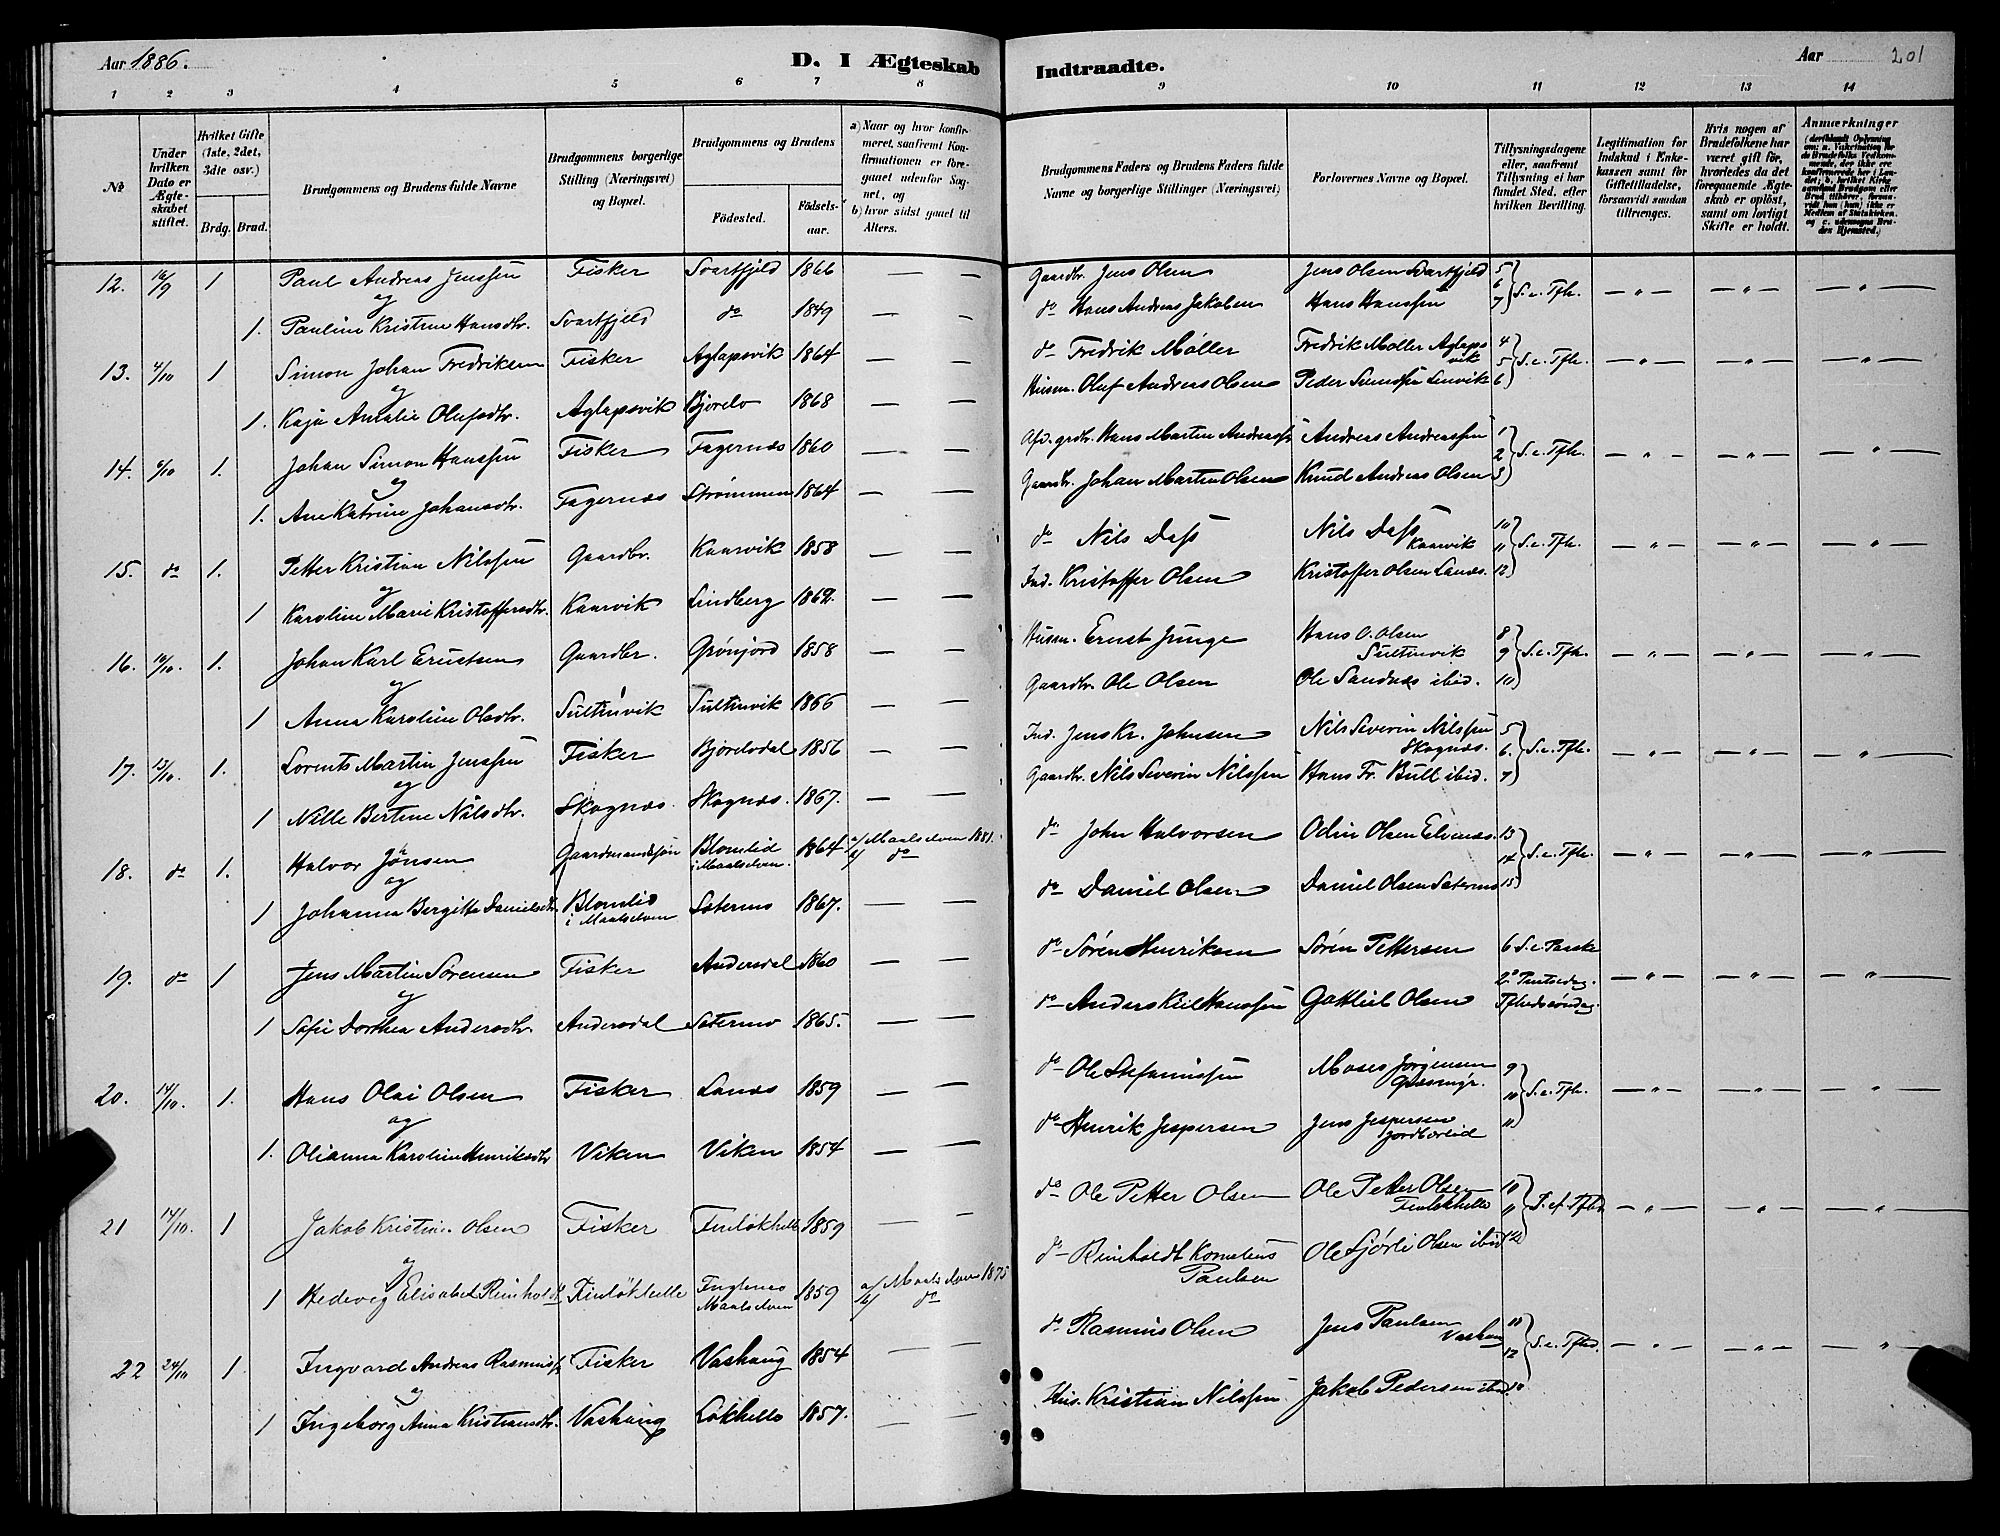 Aar 1886.
D. I Ægteskab Indtraadte.
Aar 201
1 2 3 4 5 6 7 8 9 10 11 12 13 14
№
Under hvilken Dato er Ægteskabet stiftet.
Hvilket Gifte (1ste, 2det, 3die osv.)
Brdg. Brud.
Brudgommens og Brudens fulde Navne
Brudgommens borgerlige Stilling (Næringsvei) og Bopæl.
Brudgommens og Brudens
Fødested.
Fødselsaar.
a) Naar og hvor konfirmeret, saafremt Konfirmationen er foregaaet udenfor Sognet, og
b) hvor sidst gaaet til Alters.
Brudgommens Faders og Brudens Faders fulde Navne og borgerlige Stillinger (Næringsvei)
Forlovernes Navne og Bopæl.
Tillysningsdagene eller, saafremt Tillysning ei har fundet Sted, efter hvilken Bevilling.
Legitimation for Indskud i Enkekassen samt for Giftetilladelse, forsaavidt saadan tiltrænges.
Hvis nogen af Brudefolkene har været gift før, hvorledes da det foregaaende Ægteskab er opløst, samt om lovligt Skifte er holdt.
Anmærkninger (deriblandt Oplysning om: a. Vakcination for de Brudefolks Vedkommende, der ikke ere konfirmerede her i Landet; b. hvilket Kirkesamfund Brudgom eller Brud tilhører, forsaavidt han (hun) ikke er Medlem af Statskirken, og c. udensogns Brudes Hjemsted.)
12. 16/9 1 Paul Andreas Jenssen Fisker Svartfjeld 1866 — — Gaardbr. Jens Olsen Jens Olsen Svartfjeld 5 6 7 S. e. Tfh. — „ — — „ — — „ —
og
1. Pauline Kristine Hansdtr. Svartfjeld do 1849 — — do Hans Andreas Jakobsen Hans Hanssen
13. 4/10 1 Simon Johan Fredriksen Fisker Aglapsvik 1864 — — do Fredrik Møller Fredrik Møller Aglapsvik 4 5 6 S. e. Tfh. — „ — — „ — — „ —
og
1. Kaja Amalie Olufsdtr. Aglapsvik Bjorelv 1868 — — Husm. Oluf Andreas Olsen Peder Lenvik
14. 6/10 1. Johan Simon Hanssen Fisker Fagernæs 1860 — — Hans Martin Andreassen Andreas Andreassen 1 2 3 S. e. Tfh. — „ — — „ — — „ —
og
1. Ane Katrine Johansdtr. Fagernæs Strømmen 1864 — — Gaardbr. Johan Martin Olsen Knud Andreas Olsen
15. do 1. Petter Kristian Nilssen Gaardbr. Kaarvik 1858 — — do Nils Dass Nils Dass Kaarvik 10 11 12 S. e. Tfh. — „ — — „ — — „ —
og
1 Karoline Marie Kristoffersdtr. Kaarvik Lindberg 1862. — — Ind. Kristoffer Olsen Kristoffer Olsen Lanæs.
16. 10/10. 1. Johan Karl Ernstsen Gaardbr. Grønjord 1858 — — Husm. Ernst Junge Hans O. Olsen Sultinvik 8 9 10 S. e. Tfh. — „ — — „ — — „ —
og
1 Anna Karoline Olsdtr. Sultinvik Sultinvik 1866 — — Gaardbr. Ole Olsen Ole Sandnæs ibid.
17. 13/10. 1. Lorents Martin Jenssen Fisker Bjorelvdal 1856 — — Ind. Jens Kr. Johnsen Nils Severin Nilssen Skognæs. 5 6. 7 S. e. Tfh. — „ — — „ — — „ —
og
1 Nille Bertine Nilsdtr. Skognæs. Skognæs. 1867. — — Gaardbr. Nils Severin Nilssen Hans Fr. Bull ibid.
18. do 1. Halvor Jönsen Gaardmandssøn Blomlid i Maalselven 1864 a/ Maalselven 1881. b/ do do John Halvorsen Odin Olsen Elvenæs. 13 14 15 S. e. Tfh. — „ — — „ — — „ —
og
1 Johanna Bergitte Danielsdtr. Blomlid i Maalselven Sætermo 1867. — — do Daniel Olsen Daniel Olsen Sætermo
19. do 1 Jens Martin Sörensen Fisker Andersdal 1860 — — do Sören Henriksen Sören Pettersen 6 S. e. Paaske — „ — — „ — — „ —
og 2. Pintsedag.
1 Sofie Dorthea Andersdtr. Andersdal Sætermo 1865. — — do Anders Kiil Hanssen Gottlieb Olsen Tfhedssöndag.
20. 14/10. 1. Hans Olai Olsen Fisker Lanæs 1859 — — do Ole Stefanussen Moses Jörgensen Græsmyr. 9 10 11 S. e. Tfh. — „ — — „ — — „ —
og
1. Olianna Karoline Henriksdtr Viken Viken 1854 — — do Henrik Jespersen Jens Jespersen
21 14/10. 1 Jakob Kristian Olsen Fisker Finløkhelle 1859 — — do Ole Petter Olsen Ole Petter Olsen Finløkhelle 10 11 12 S. ef. Tfhd. — „ — — „ — — „ —
og
1 Hedevig Elisabet Reinholdtdtr Finløkhelle Fuglenes Maalselven 1859 a/ Maalselven 1875 b/ do do Reinholdt Kornelius Paulsen Ole Sjørli Olsen ibid
22 24/10 1 Ingvard Andreas Rasmuss. Fisker Vashaug 1854 — — do Rasmus Olsen Jens Paulsen Vashaug 11 12 S. e. Tfhd. — „ — — „ — — „ —
og
1 Ingeborg Anna Kristiansdtr. Vashaug Løkhelle 1857. — — Hus. Kristian Nilssen Jakob Pedersen ibid